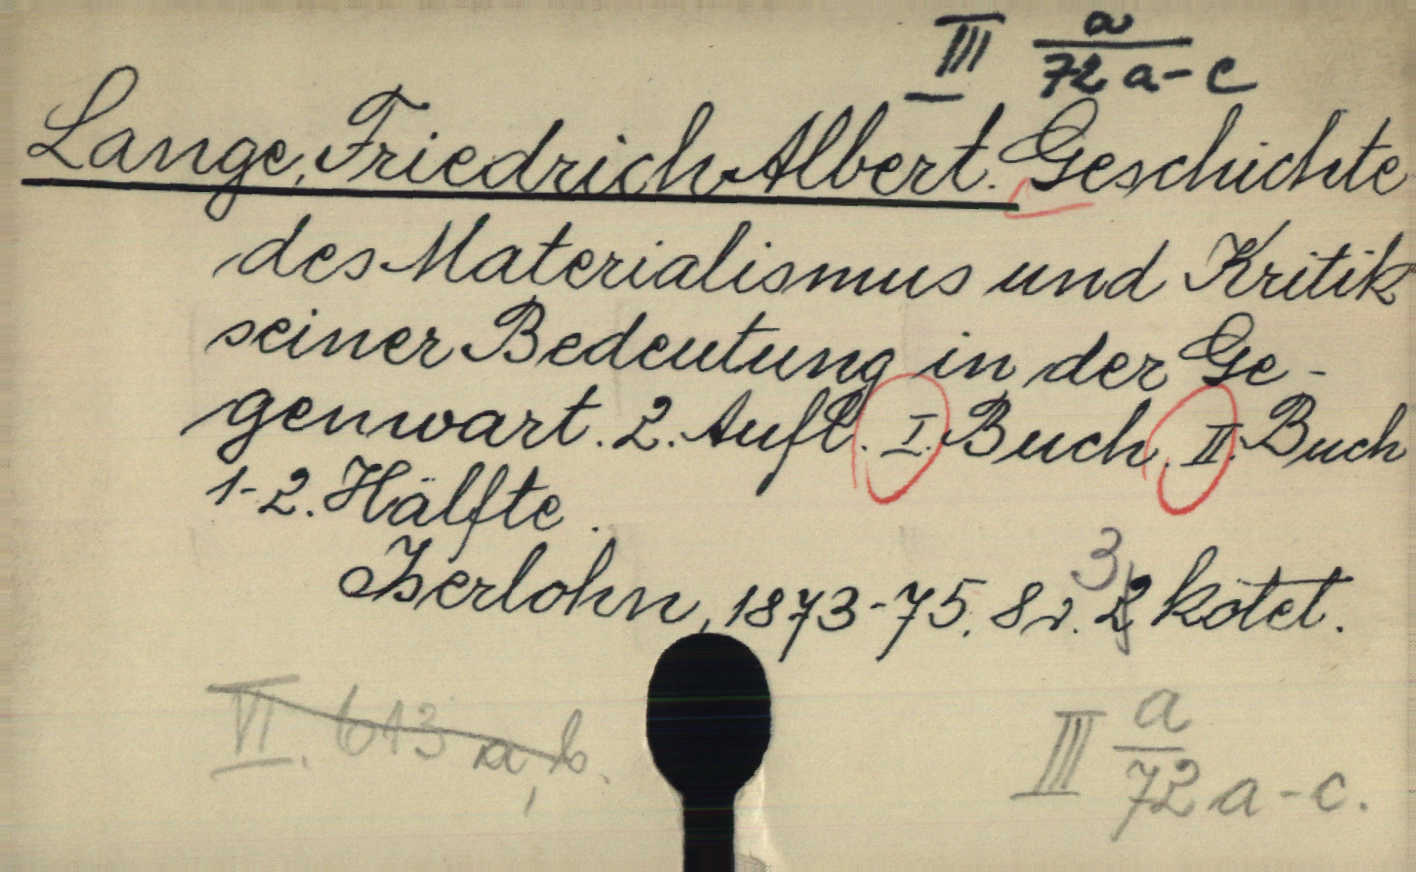 III a/72 a-c
Lange, Friedrich Albert. Geschichte
des Materialismus und Kritik
seiner Bedeutung in der Ge-
genwart. 2. Aufl. I. Buch. II. Buch
1-2. Hälfte.
Iserlohn, 1873-75. 8r. 2 3 kötet.
VI. 613 a, b.
III a/72 a-c.